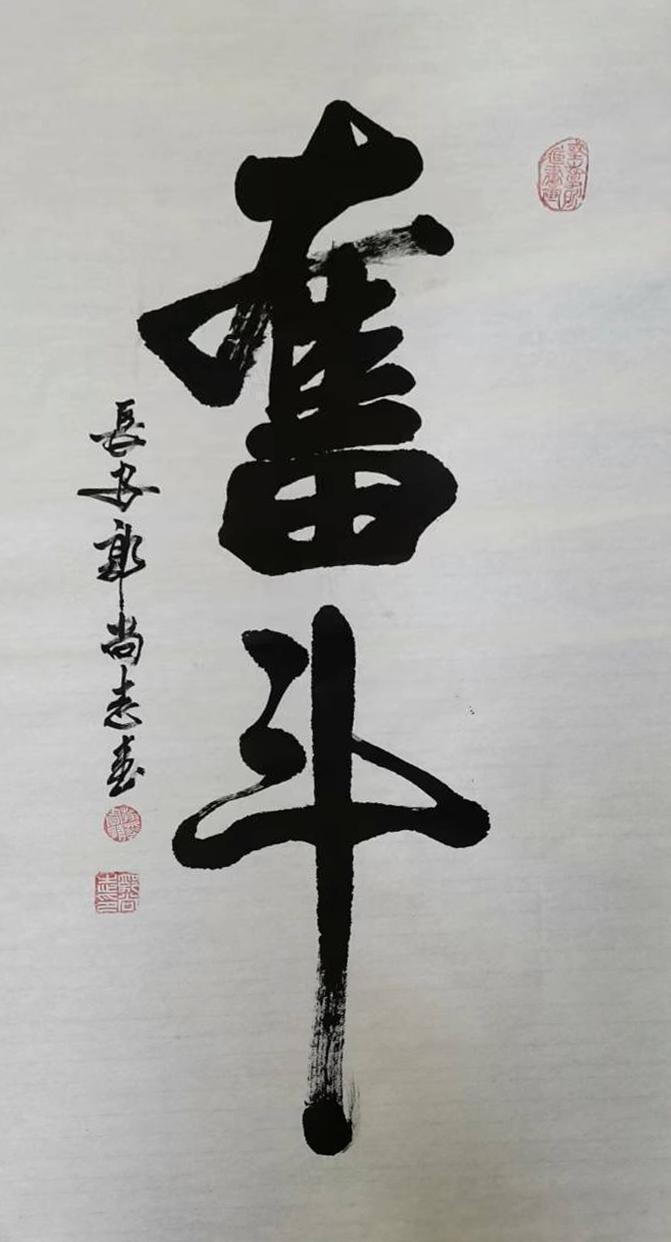 奮斗
長安郭尚志書